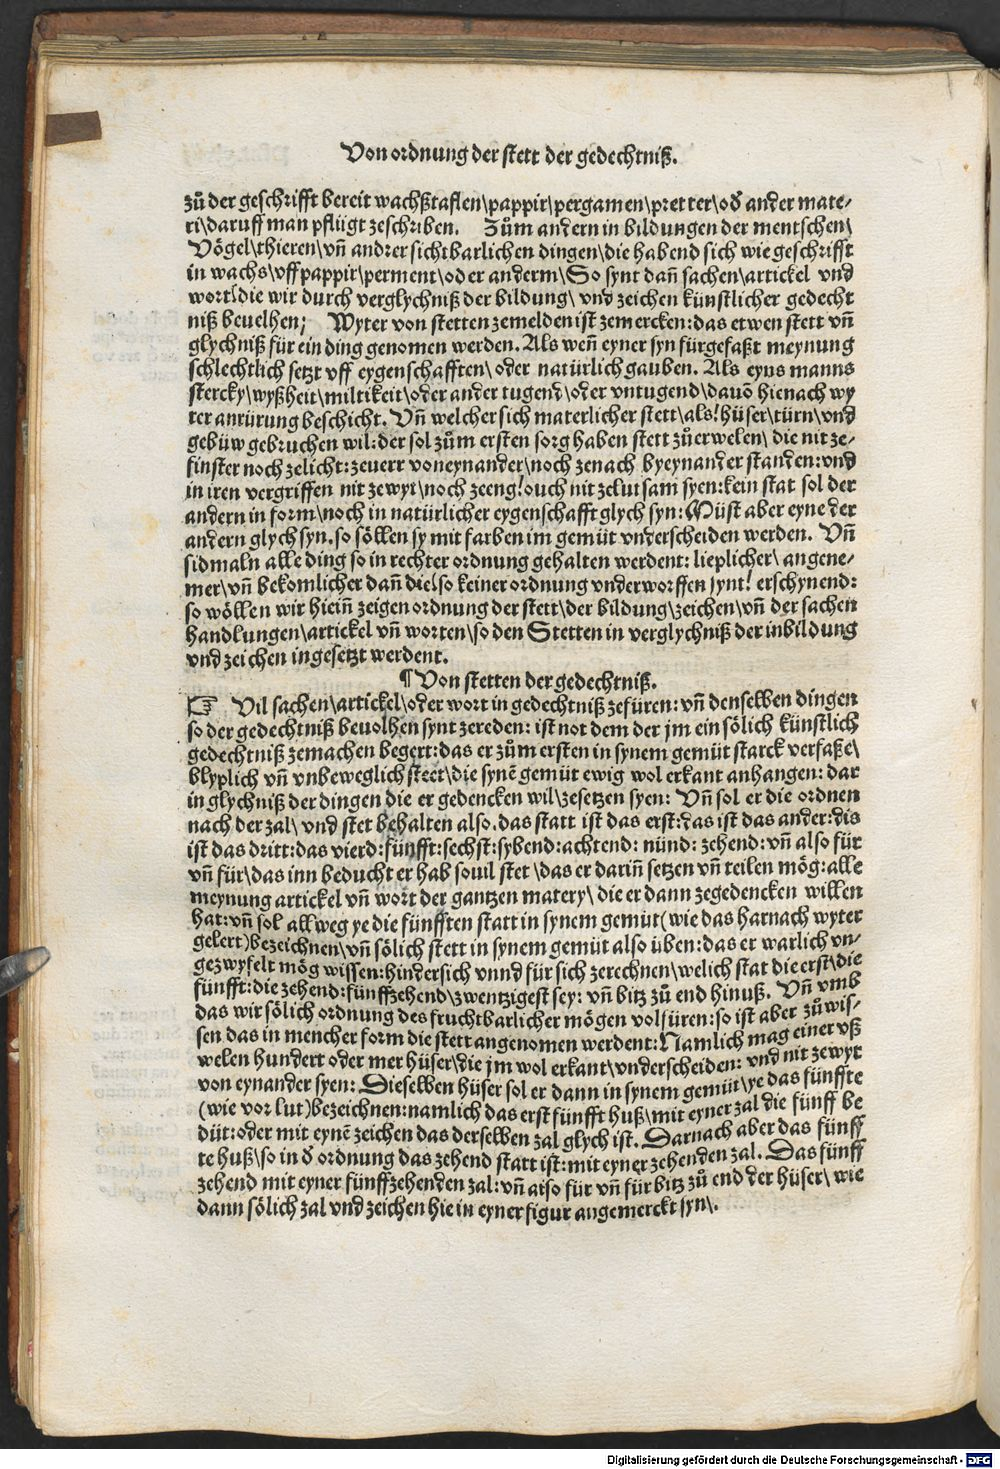 Von ordnung der stett der gedechtniß.
zů der geschrifft bereit wachßtaflen\pappir\pergamen\pretter\oď ander mate⸗
ri\daruff man pflügt zeschriben. Zům andern in bildungen der mentschen\
Vögel\thieren\vn̄ andrer sichtbarlichen dingen\die habend sich wie geschrifft
in wachs\vff pappir\perment\oder anderm\So synt dan̄ sachen\artickel vnd
wort\die wir durch verglychniß der bildung\ vnd zeichen künstlicher gedecht
niß beuelhen; Wyter von stetten zemelden ist zemercken: das etwen stett vn̄
glychniß für ein ding genomen werden. Als wen̄ eyner syn fürgefaßt meynung
schlechtlich setzt vff eygenschafften\ oder natürlich gauben. Als eyns manns
stercky\wyßheit\miltikeit\oder ander tugend\oder vntugend\dauō hienach wy
ter anrürung beschicht. Vn̄ welcher sich materlicher stett\als! hüser\türn\vnd
gebüw gebruchen wil: der sol zům ersten sorg haben stett zů erwelen\ die nit ze⸗
finster noch zelicht: zeuerr von eynander\noch zenach byeynander standen: vnd
in iren vergriffen nit zewyt\noch zeeng! ouch nit zelutsam syen: kein stat sol der
andern in form\noch in natürlicher eygenschafft glych syn: Müst aber eyne der
andern glych syn. so söllen sy mit farben im gemüt vnderscheiden werden. Vn̄
sidmaln alle ding so in rechter ordnung gehalten werdent: lieplicher\ angene⸗
mer\vn̄ bekomlicher dan̄ die\so keiner ordnung vnderworffen synt! erschynend:
so wöllen wir hiein̄ zeigen ordnung der stett\der bildung\zeichen\vn̄ der sachen
handlungen\artickel vn̄ worten\so den Stetten in verglychniß der inbildung
vnd zeichen ingesetzt werdent.
¶ Von stetten der gedechtniß.
☞ Vil sachen\artickel\oder wort in gedechtniß zefüren: vn̄ denselben dingen
so der gedechtniß beuolhen synt zereden: ist not dem der jm ein sölich künstlich
gedechtniß zemachen begert: das er zům ersten in synem gemüt starck verfaße\
blyplich vn̄ vnbeweglich steet\die synē gemüt ewig wol erkant anhangen: dar
in glychniß der dingen die er gedencken wil\zesetzen syen: Vn̄ sol er die ordnen
nach der zal\ vnd stet behalten also. das statt ist das erst: das ist das ander: dis
ist das dritt: das vierd: fünfft: sechst: sybend: achtend: nünd: zehend: vn̄ also für
vn̄ für\das inn beducht er hab souil stet\das er darin̄ setzen vn̄ teilen mög: alle
meynung artickel vn̄ wort der gantzen matery\ die er dann zegedencken willen
hat: vn̄ sol allweg ye die fünfften statt in synem gemüt (wie das harnach wyter
gelert) bezeichnen\vn̄ sölich stett in synem gemüt also üben: das er warlich vn⸗
gezwyfelt mög wissen: hindersich vnnd für sich zerechnen\welich stat die erst\die
fünfft: die zehend: fünffzehend\zwentzigest sey: vn̄ bitz zů end hinuß. Vn̄ vmb
das wir sölich ordnung des fruchtbarlicher mögen volfüren: so ist aber zů wis⸗
sen das in mencher form die stett angenomen werdent: Namlich mag einer vß
welen hundert oder mer hüser\die jm wol erkant\vnderscheiden: vnd nit zewyt
von eynander syen: Dieselben hüser sol er dann in synem gemüt\ye das fünffte
(wie vor lut) bezeichnen: namlich das erst fünfft huß\mit eyner zal die fünff be
düt: oder mit eynē zeichen das derselben zal glych ist. Darnach aber das fünff
te huß\so in ď ordnung das zehend statt ist: mit eyner zehenden zal. Das fünff
zehend mit eyner fünffzehenden zal: vn̄ also für vn̄ für bitz zů end der hüser\ wie
dann sölich zal vnd zeichen hie in eyner figur angemerckt syn\.
Digitalisierung gefördert durch die Deutsche Forschungsgemeinschaft - DFG